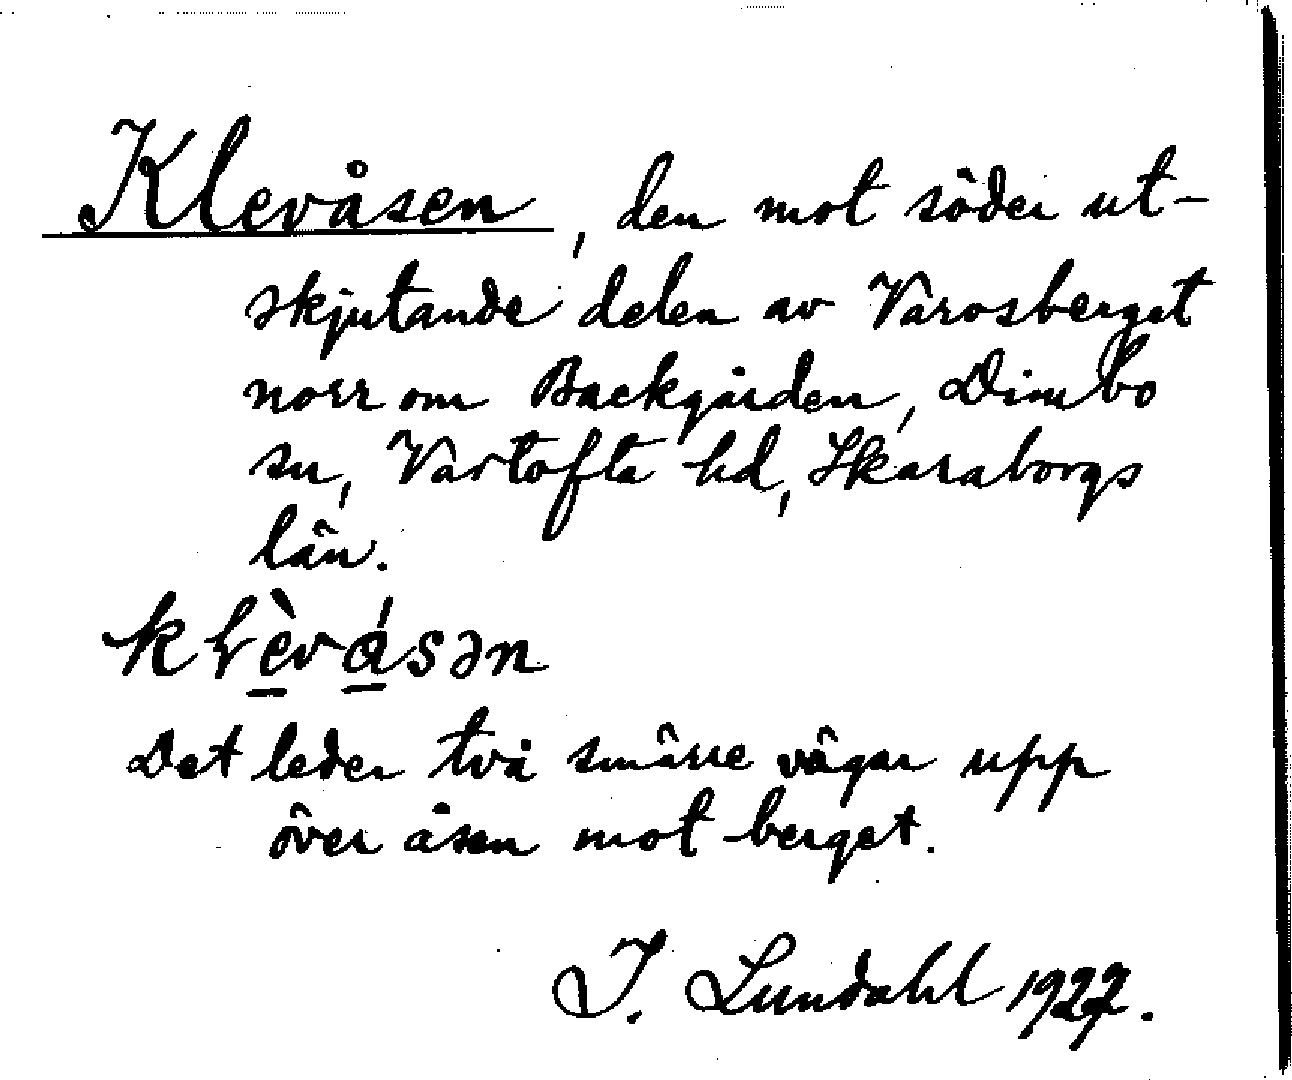 Klevåsen, den mot söder ut-
skjutande delen av Varosberget
norr om Backgården, Dimbo
sn, Vartofta hd, Skaraborgs
län.
klèvásən
Det leder två smärre vägar upp
över åsen mot berget.
I. Lundahl 1927.